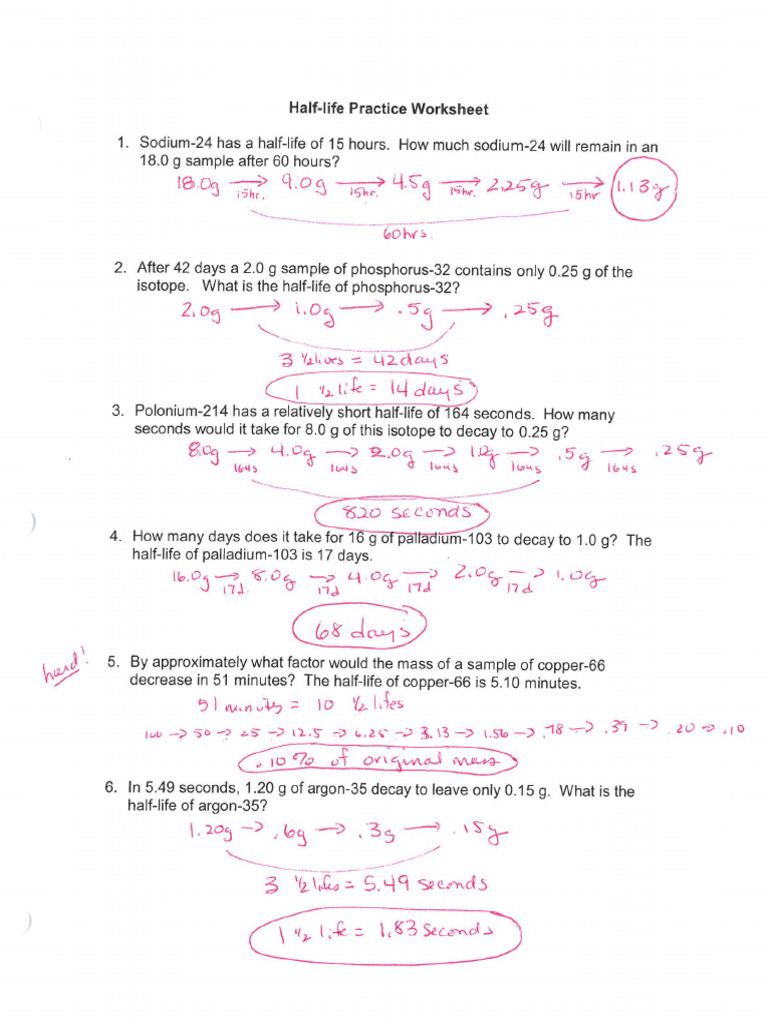 Half-life Practice Worksheet
1. Sodium-24 has a half-life of 15 hours. How much sodium-24 will remain in an
18.0 g sample after 60 hours?
18.0g → 9.0g → 4.5g → 2.25g → 1.13g
15hr. 15hr. 15hr. 15hr
60hrs.
2. After 42 days a 2.0 g sample of phosphorus-32 contains only 0.25 g of the
isotope. What is the half-life of phosphorus-32?
2.0g → 1.0g → .5g → .25g
3 ½lives = 42days
1 ½life = 14 days
3. Polonium-214 has a relatively short half-life of 164 seconds. How many
seconds would it take for 8.0 g of this isotope to decay to 0.25 g?
8.0g → 4.0g → 2.0g → 1.0g → .5g → .25g
164s 164s 164s 164s 164s
820 seconds
4. How many days does it take for 16 g of palladium-103 to decay to 1.0 g? The
half-life of palladium-103 is 17 days.
16.0g → 8.0g → 4.0g → 2.0g → 1.0g
17d. 17d 17d 17d
68 days
hard!
5. By approximately what factor would the mass of a sample of copper-66
decrease in 51 minutes? The half-life of copper-66 is 5.10 minutes.
51 minutes = 10 ½ lifes
100 → 50 → 25 → 12.5 → 6.25 → 3.13 → 1.56 → .78 → .39 → .20 → .10
.10% of original mass
6. In 5.49 seconds, 1.20 g of argon-35 decay to leave only 0.15 g. What is the
half-life of argon-35?
1.20g → .6g → .3g → .15g
3 ½lifes = 5.49 seconds
1 ½ life = 1.83 seconds